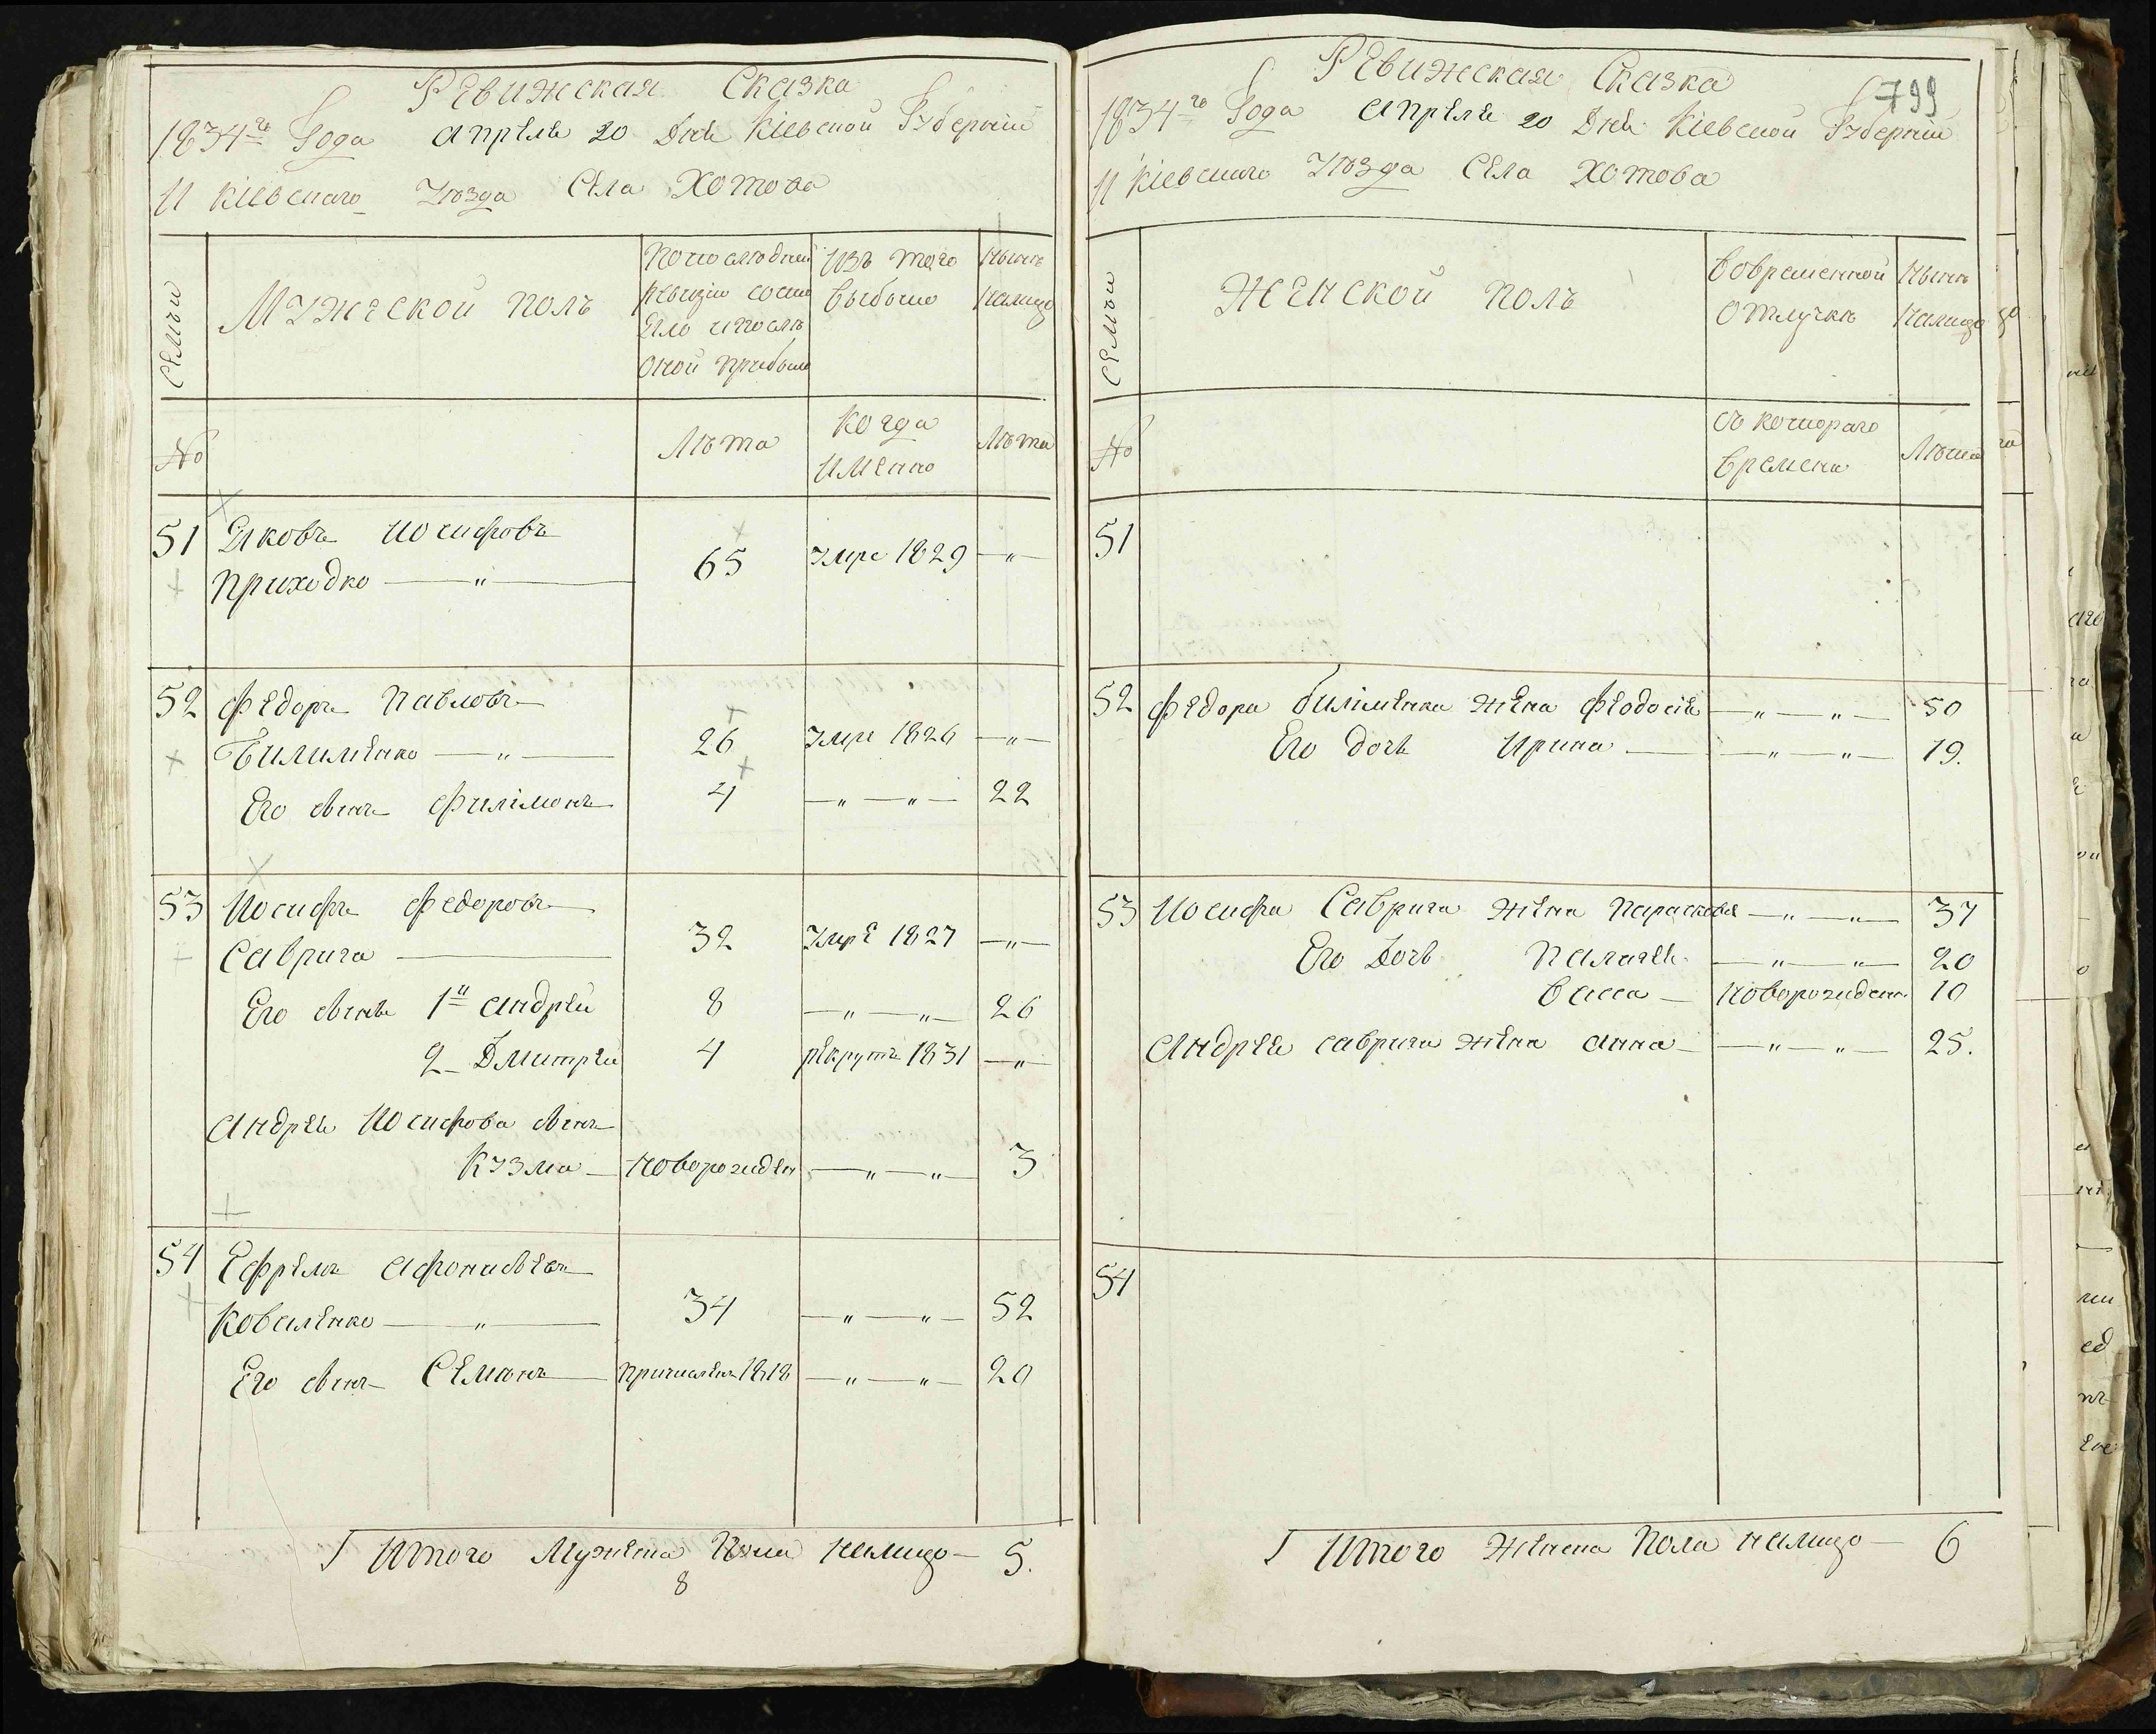 Ревижская Сказка
1834го Года Апреля 20 Дня Кіевской Губерніи
И Кіевскаго Уѣзда Села Хотова
Семьи
Мужеской полъ
По последней
ревизіи состо
яло и после
оной прибыло
Изъ того
выбыло
Нынѣ
налицо
№
Лѣта
Когда
именно
Лѣта
51 Яковъ Иосифовъ
Приходко — „ — 65 умре 1829 — „ —
52 Федоръ Павловъ
Билименко — „ — 26 умре 1826 — „ —
Его сынъ Филімонъ 4 — „ — „ — 22
53 Иосифъ Федоровъ
Саврига — 32 умре 1827 — „ —
Его сынья 1й Андрей 8 — „ — „ — 26
2 Дмитрей 4 рекрутъ 1831 — „ —
Андрея Иосифова сынъ
Кузма — новорожден — „ — „ — 3
54 Ефремъ Афонасьевъ
Коваленко — „ — 34 — „ — „ — 52
Его сынъ Семионъ причисленъ 1818 — „ — „ — 20
Итого Мужеска Пола налицо — 5.
8
799
Ревижская Сказка
1834го Года Апреля 20 Дня Кіевской Губерніи
И Кіевскаго Уѣзда Села Хотова
Семьи
Женской полъ
Вовременной
отлучкѣ
Нынѣ
налицо
№
съ котораго
времени
Лѣта
51
52 Федора билименка жена Феодосія — „ — „ — 50
Его дочь Ирина — „ — „ — 19.
53 Иосифа Саврига жена Параскевія — „ — „ — 37
Его Дочь Палагея — „ — „ — 20
Васса — новорожден. 10
Андрея саврига жена Анна — „ — „ — 25.
54
Итого Женска Пола налицо — 6